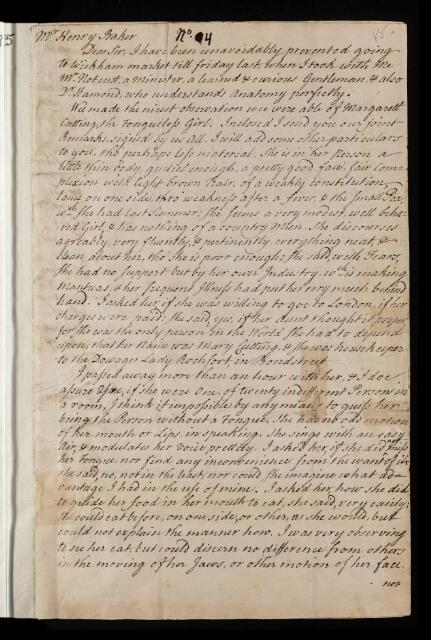 Mr. Henry Baker No. 94
Dear Sir, I have been unavoidably prevented going
to Wickham market till friday last, when I took with me
Mr. Notcutt, a minister, a learned & curious Gentleman, & also
Dr. Hamond, who understands Anatomy perfectly.
We made the nicest observation wee were able of Margarett
Cutting, the Tongueless Girl. Inclosed I send you our joint
Remarks, signed by us all. I will add some other particulars
to you, tho' perhaps less material. She is in her Person a
little thin body, genteel enough, a pretty good face, fair com=
plexion with light brown Hair, of a weakly constitution,
lame on one side, thro' weakness after a fever, & the small Pox,
wch. she had last Summer, She seems a very modest, well beha=
ved Girl, & has nothing of a country mien. She discourses
agreably, very fluently, & pertinently, everything neat, &
clean, about her, tho' She is poor enough; She said, with Tears,
She had no support but by her own Industry, wch. is making
mantuas, & her frequent Illness had put her very much behind
hand. I asked her, if she was willing to goe to London, if her
charges were paid; She said, yes, if her Aunt thought it proper
for She was the only person in the World, She had to depend
upon, that her Name was Mary Cutting, & She was housekeeper
to the Dowager Lady Rochfort in Bondstreet
I passed away more than an hour with her, & I doe
assure You, if she were One, of twenty indifferent Persons in
a room, I think it impossible by any means to guess her
being the Person without a Tongue, She had no odd motion
of her mouth or Lips, in speaking. She sings with an easy
Air, & modulates her Voice, prettily. I asked her if she did not miss
her tongue, not find any inconvenience from the want of it;
She said, no, not in the least, nor could she imagine what ad=
vantage I had in the use of mine. I asked her, how she did
to guide her food in her mouth to eat, she said, very easily;
She could eat before, on one side, or other, as she would, but
could not explain the manner how. I was very observing
to see her eat, but could discern no difference from others
in the moving of her Jaws, or other motion of her face.
nor